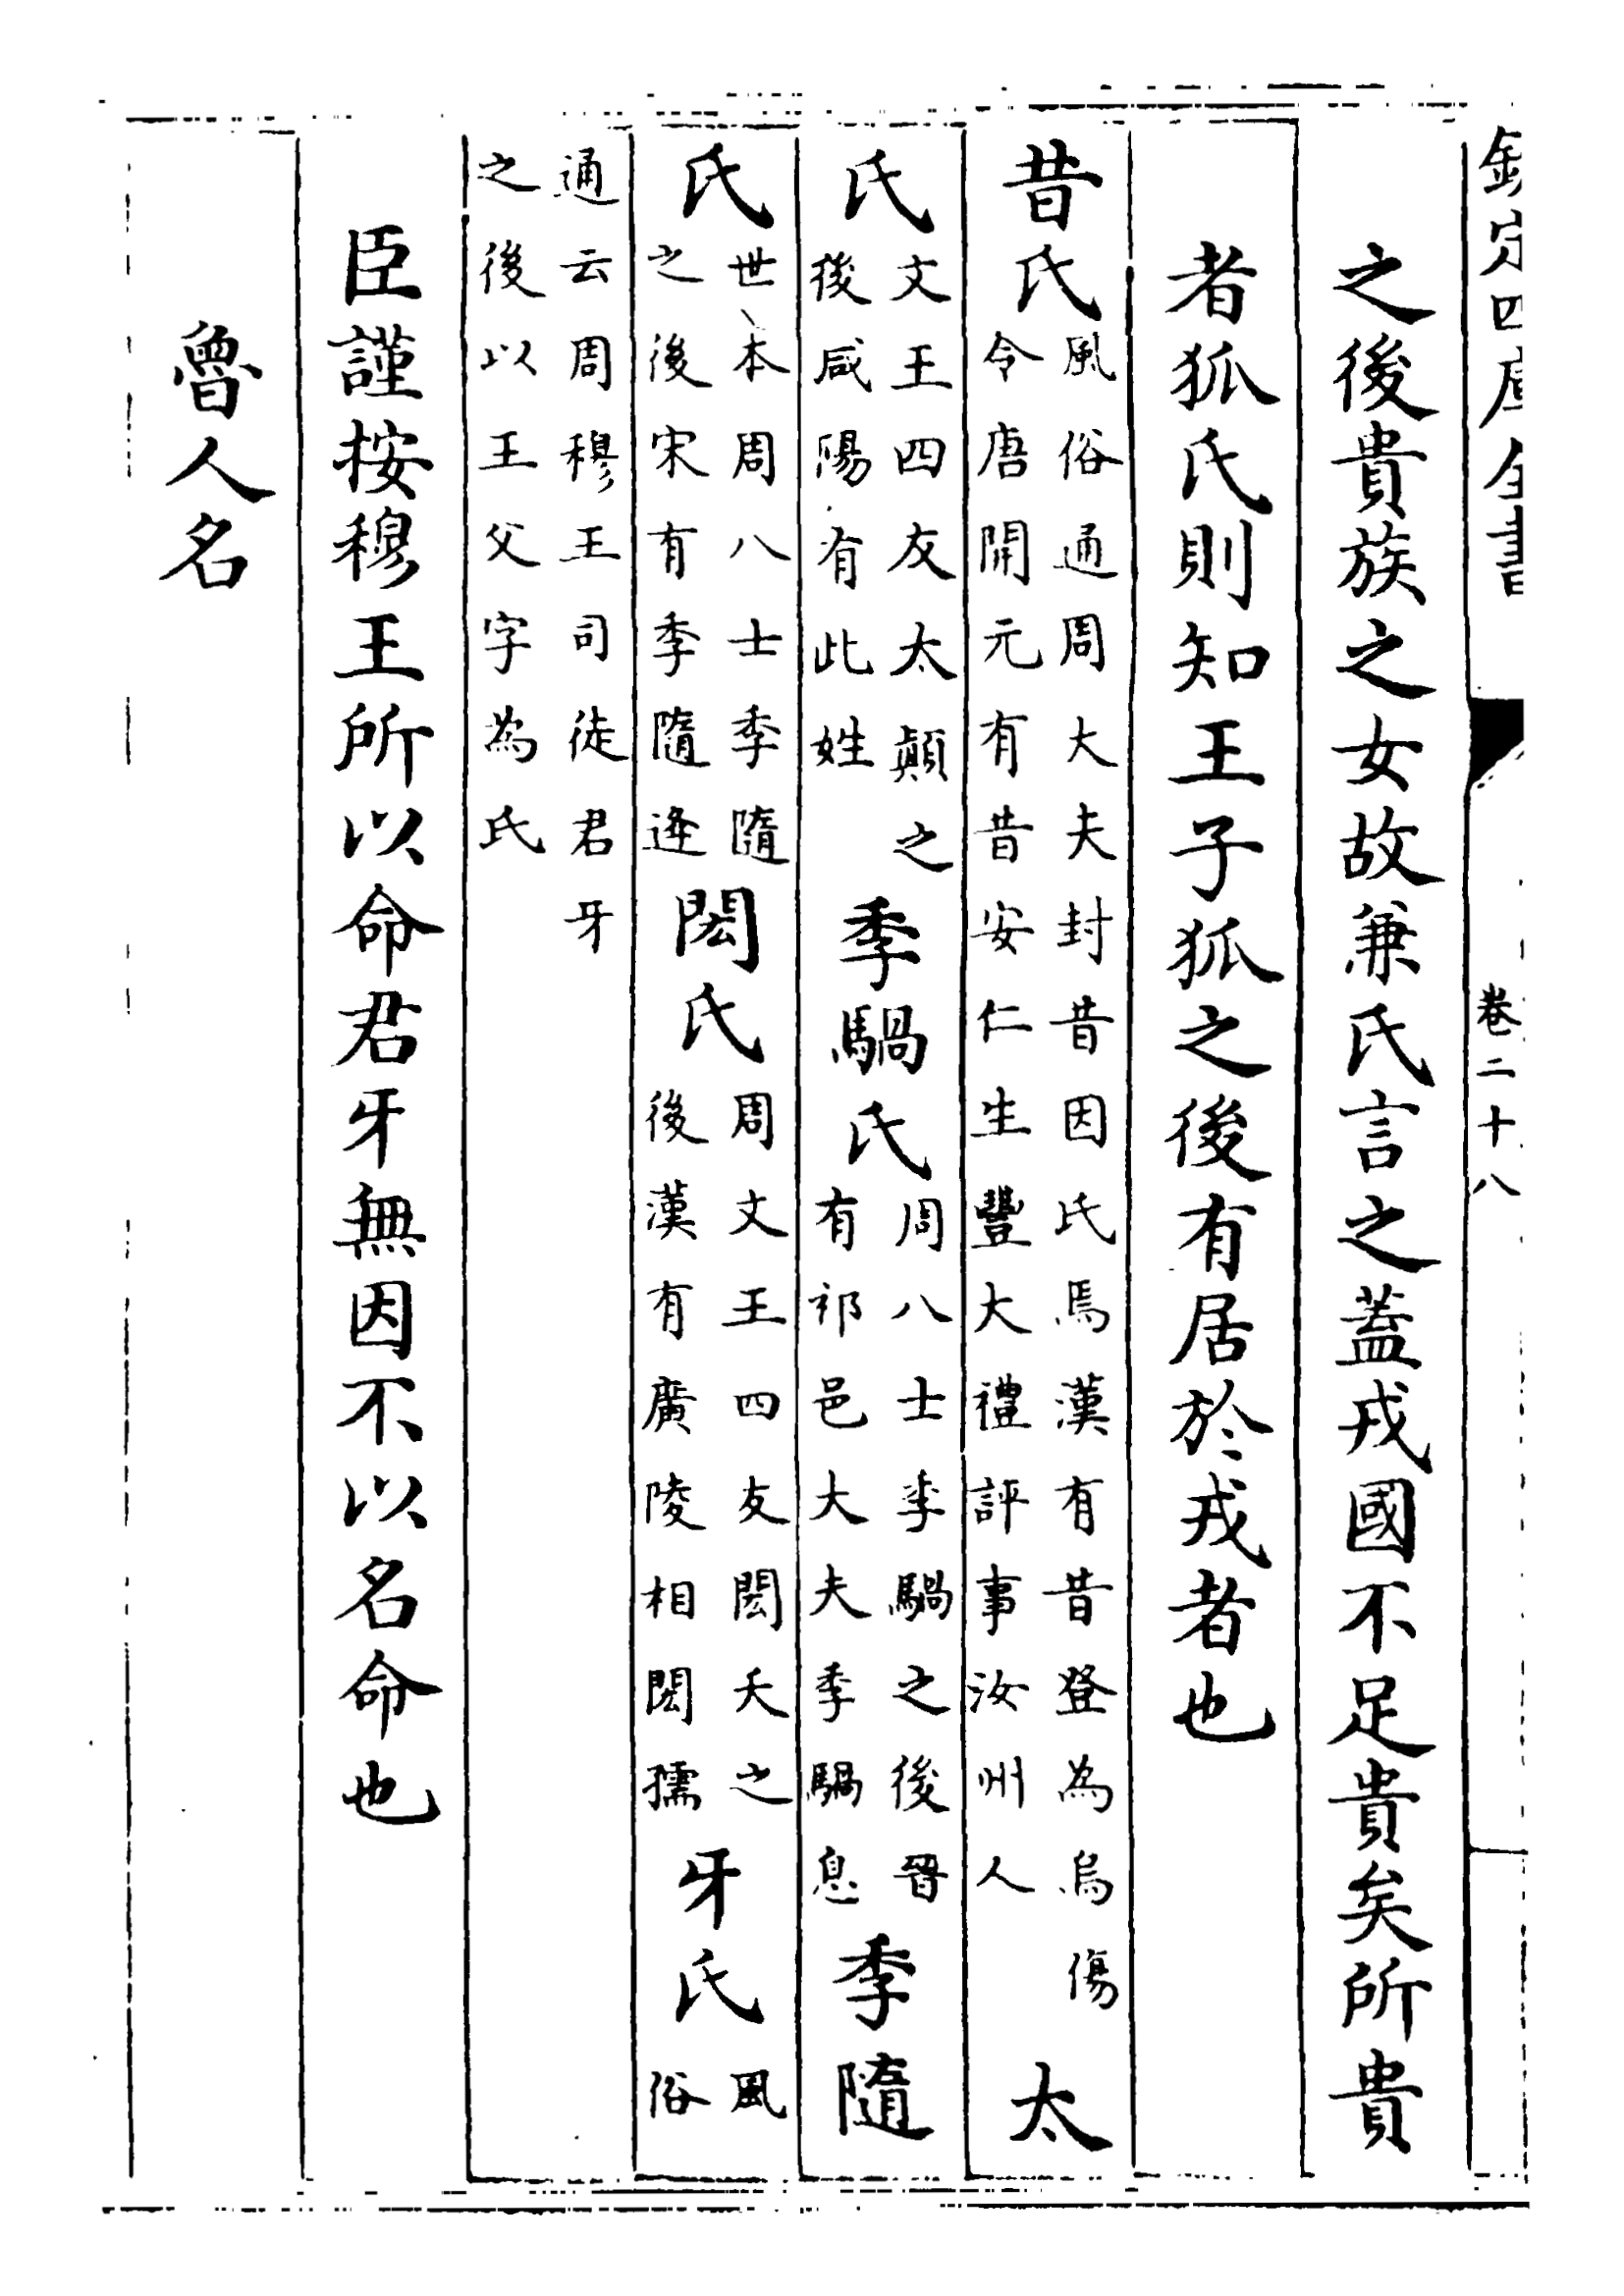 欽定四庫全書
卷二十八
之後貴族之女故兼氏言之蓋戎國不足貴矣所貴
者狐氏則知王子狐之後有居於戎者也
昔氏風俗通周大夫封昔因氏焉漢有昔登為烏傷令唐開元有昔安仁生豐大禮評事汝州人太
氏文王四友太顛之後咸陽有此姓季騧氏周八士季騧之後晉有祁邑大夫季騧息季隨
氏世本周八士季隨之後宋有季隨逄閎氏周文王四友閎夭之後漢有廣陵相閎孺牙氏風俗
通云周穆王司徒君牙之後以王父字為氏
臣謹按穆王所以命君牙無因不以名命也
魯人名